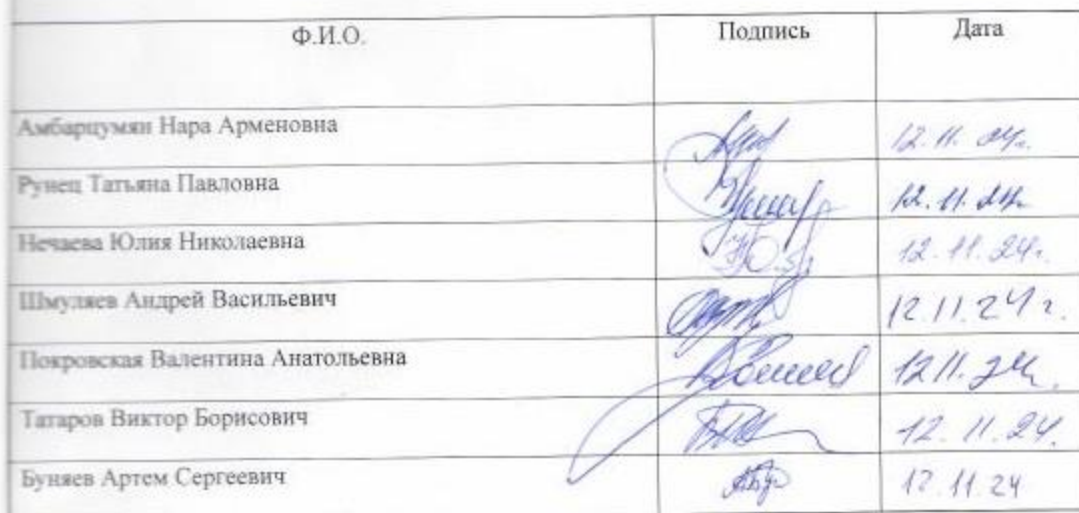 Ф.И.О. Подпись Дата
Амбарцумян Нара Арменовна 12.11.24г.
Рунец Татьяна Павловна 12.11.24г.
Нечаева Юлия Николаевна 12.11.24г.
Шмуляев Андрей Васильевич 12.11.24 г.
Покровская Валентина Анатольевна 12.11.24г.
Татаров Виктор Борисович 12.11.24.
Буняев Артем Сергеевич 12.11.24